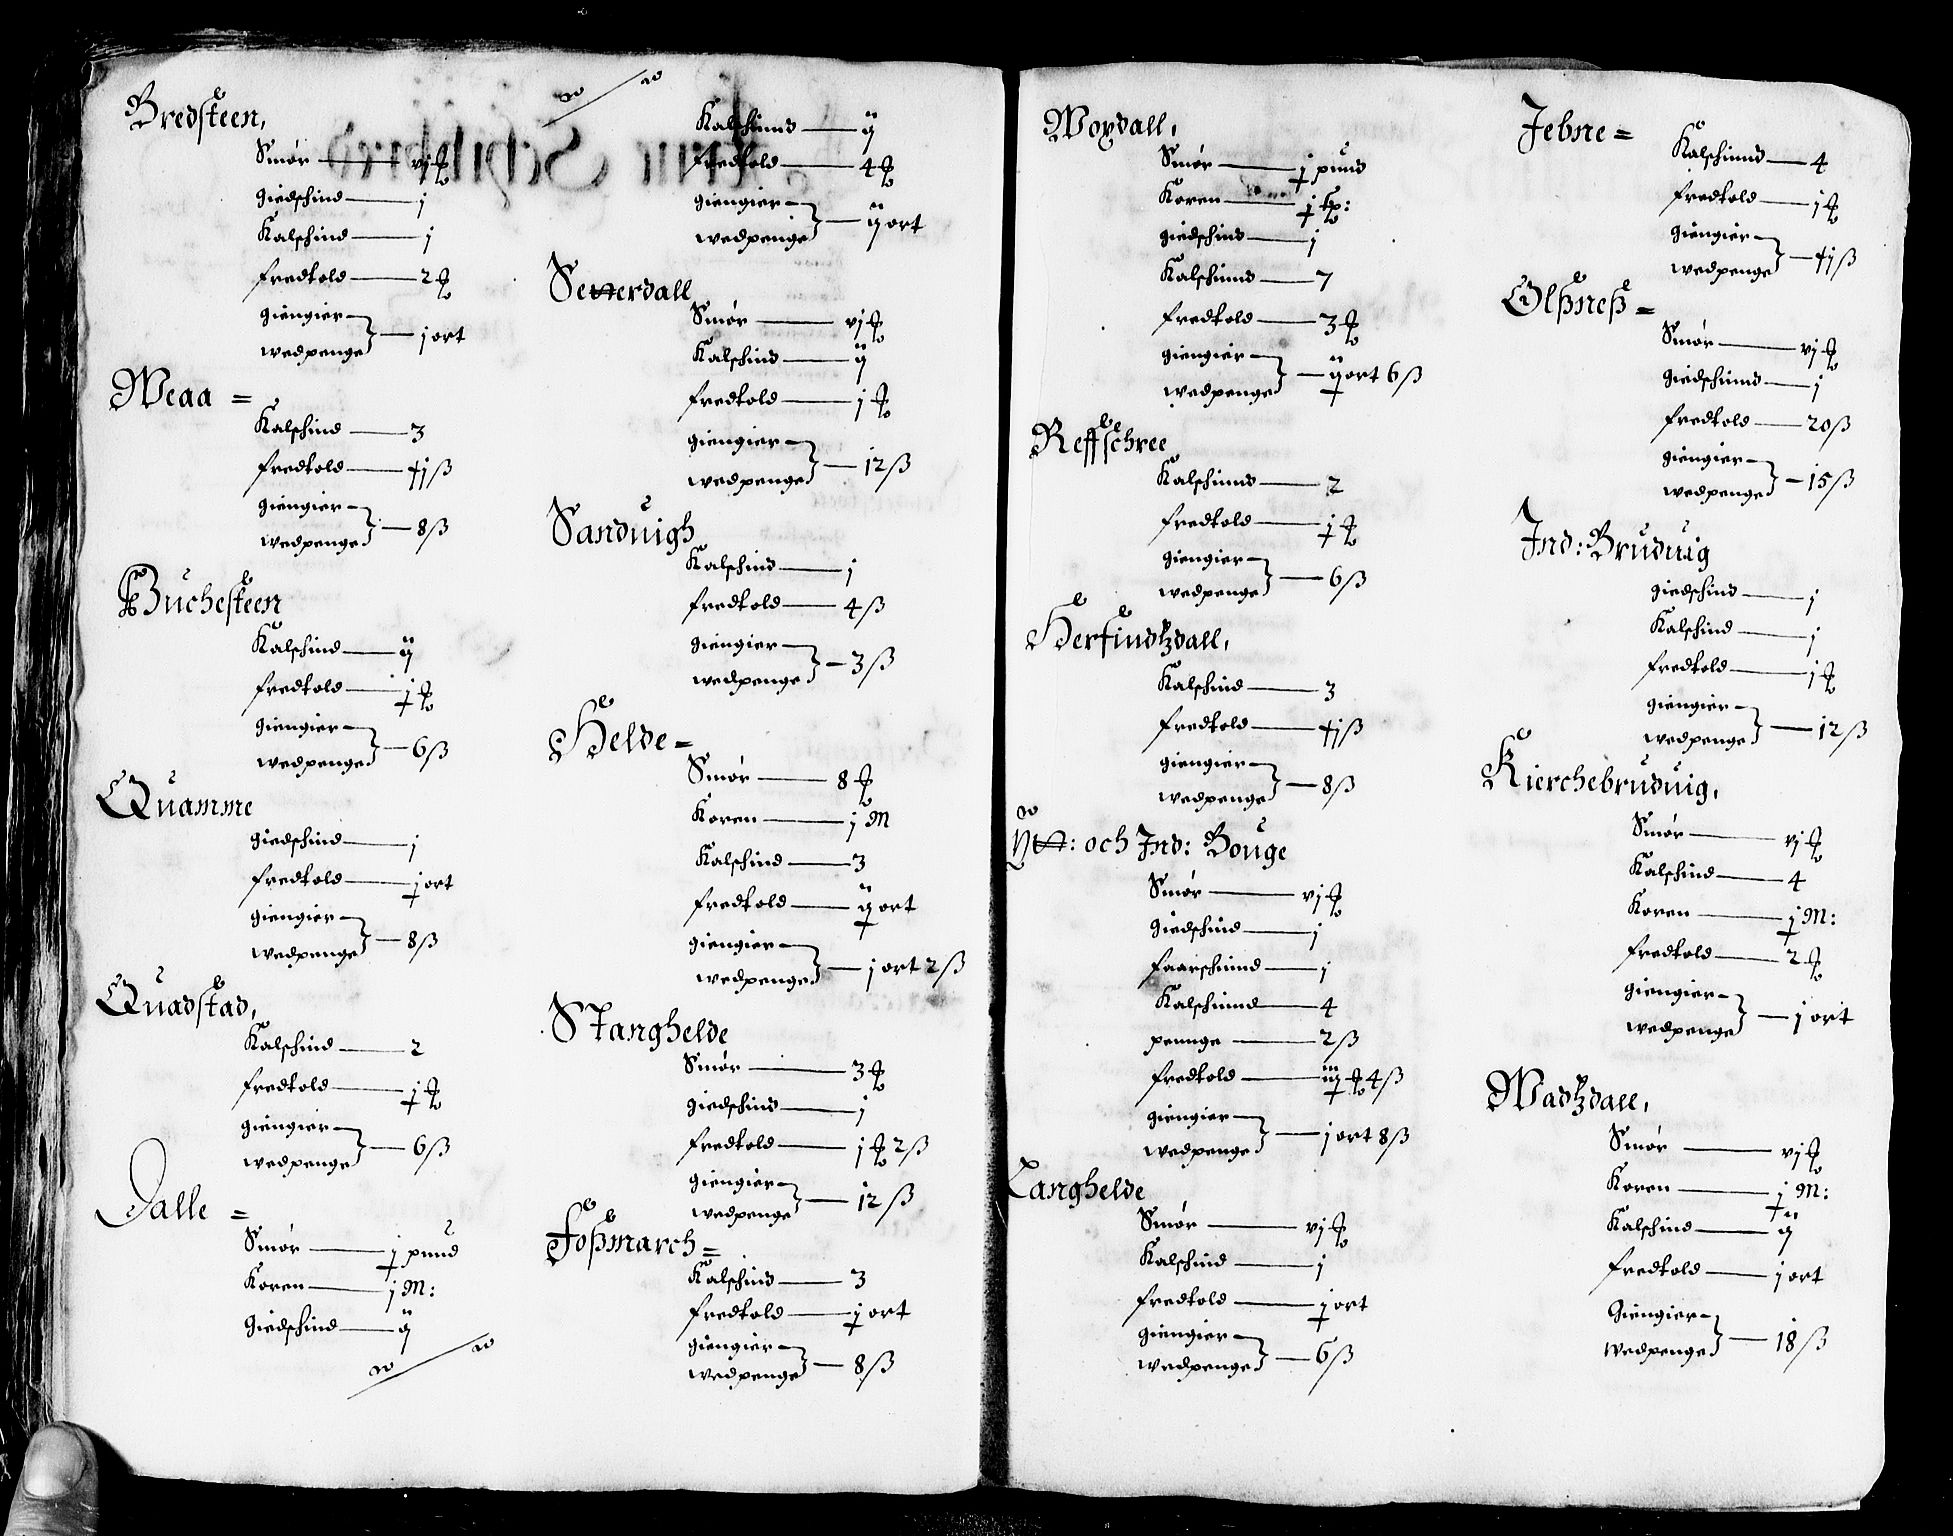 Bredsteen,
Smør — vj ℔
giedschind — j
Kalschind — j
fredtold — 2 ℔
giengier
wedpenge } — j ort
Weaa =
Kalschind — 3
fredtold — ɉj ß
giengier
wedpenge } — 8 ß
Buchesteen
Kalschind — ij
fredtold — ɉ ℔
giengier
wedpenge } — 6 ß
Quamme
giedschind — j
fredtold — ɉ ort
giengier
wedpenge } — 8 ß
Quadstad,
Kalschind — 2
fredtold — ɉ ℔
giengier
wedpenge } — 6 ß
Dalle =
Smør — ɉ pund
Koren — j M:
Giedschind — ij
Kalschind — ij
fredtold — 4 ℔
giengier
wedpenge } — ij ort
Smør — vj ℔
Kalschind — ij
fredtold — j ℔
giengier
wedpenge } — 12 ß
Sanduigh
Kalschind — j
fredtold — 4 ß
giengier
wedpenge } — 3 ß
Helde =
Smør — 8 ℔
Koren — j M
Kalschind — 3
fredtold — ij ort
giengier
wedpenge } — j ort 2 ß
Stanghelde
Smør — 3 ℔
giedschind — j
fredtold — j ℔ 2 ß
giengier
wedpenge } — 12 ß
Foßmarch =
Kalschind — 3
fredtold — ɉ ort
giengier
wedpenge } — 8 ß
Woxdall,
Smør — ɉ pund
Koren — ɉ
giedschind — j
Kalschinnd — 7
fredtold — 3 ℔
giengier
wedpenge } — ij ort 6 ß
Reffschree
Kalschinnd — 2
fredtold — ɉ ℔
giengier
wedpenge } — 6 ß
Herfindtzdall,
Kalschind — 3
fredtold — ɉj ß
giengier
wedpenge } — 8 ß
Ytt: och Ind: Bouge
Smør — vj ℔
giedschind — j
faarschinnd — j
Kalschinnd — 4
pennge — 2 ß
fredtold — iij ℔ 4 ß
giengier
wedpenge } — j ort 8 ß
Langhelde
Smør — vj ℔
Kalschind — j
fredtold — ɉ ort
giengier
wedpenge } — 6 ß
Jebne =
Kalschinnd — 4
fredtold — j ℔
giengier
wedpenge } — ɉj ß
Olßneß =
Smør — vj ℔
giedschinnd — j
fredtold — 20 ß
giengier
wedpenge } — 15 ß
Ind: Bruduig
giedschind — j
Kalschind — j
fredtold — j ℔
giengier
wedpenge } — 12 ß
Kierchebruduig,
Smør — vj ℔
Kalschind — 4
Koren — ɉ M:
fredtold — 2 ℔
giengier
wedpenge } — j ort
Wadtzdall,
Smør — vj ℔
Koren — ɉ M:
Kalschind — ij
fredtold — j ort
Giengier
wedpenge } — 18 ß